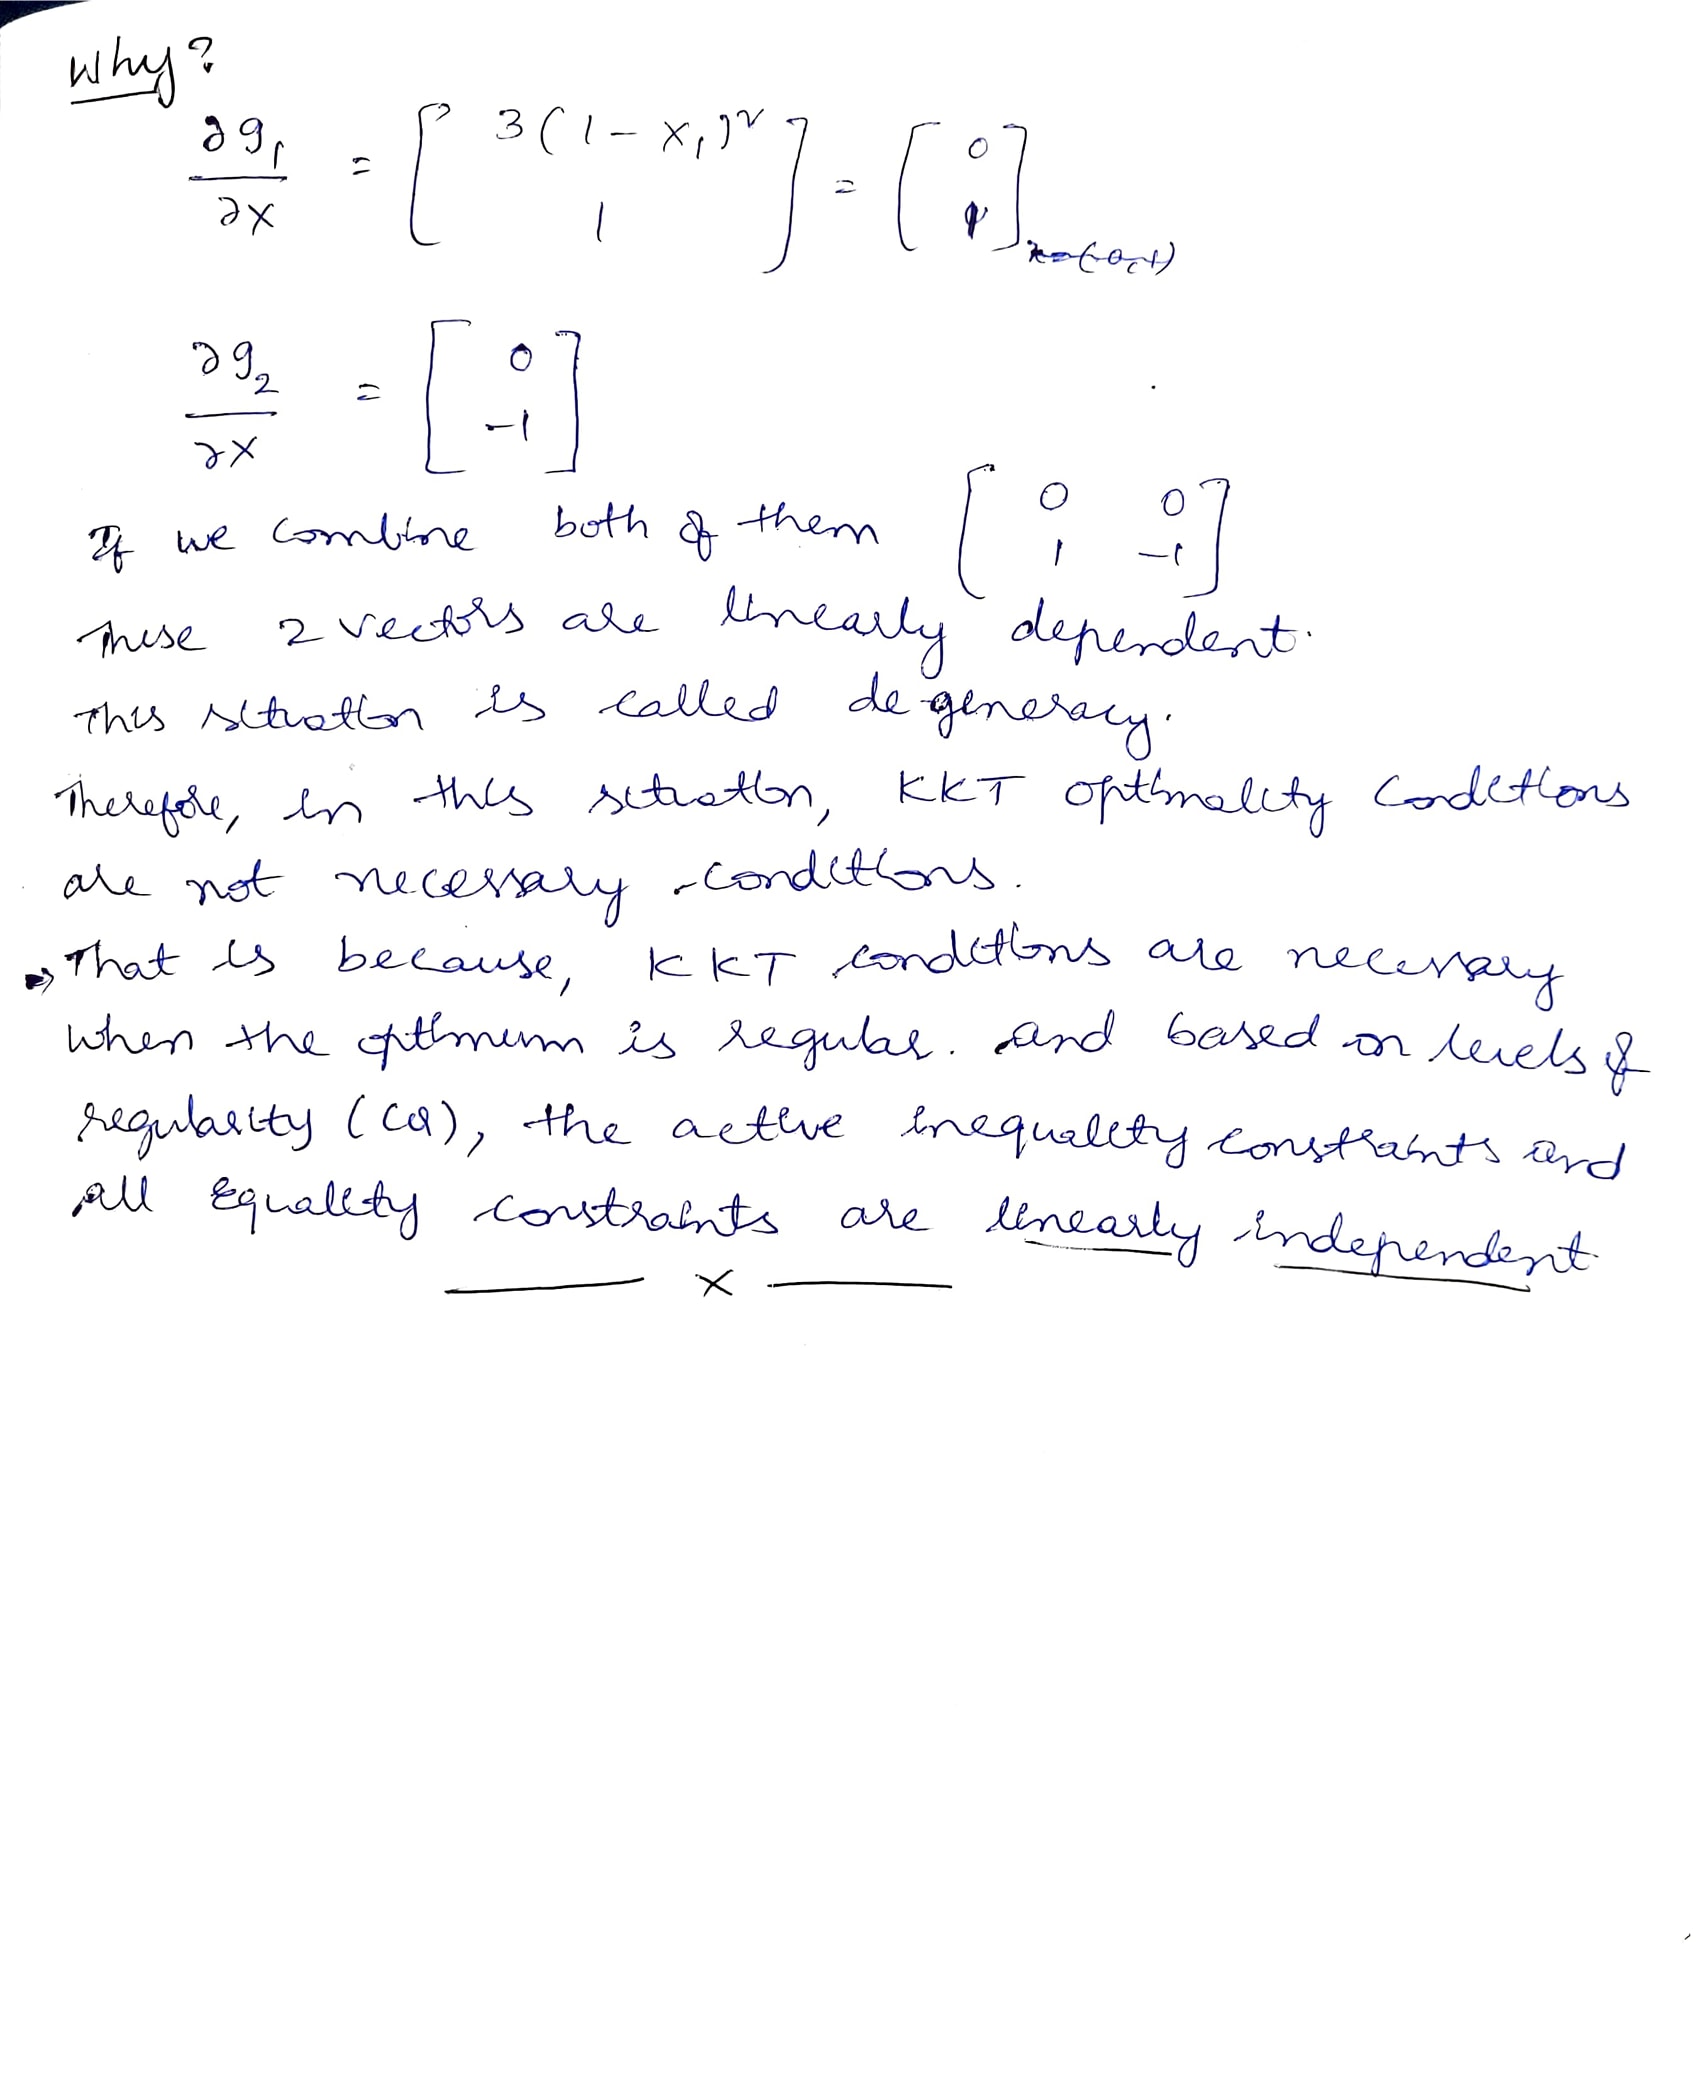 Why?
∂g₁/∂x = [ 3(1-x₁)² ; 1 ] = [ 0 ; 1 ]
∂g₂/∂x = [ 0 ; -1 ]
If we combine both of them [ 0 0 ; 1 -1 ]
These 2 vectors are linearly dependent.
This situation is called degeneracy.
Therefore, in this situation, KKT optimality conditions
are not necessary conditions.
→ That is because, KKT conditions are necessary
when the optimum is regular. and based on levels of
regularity (CQ), the active inequality constraints and
all equality constraints are linearly independent
—— x ——